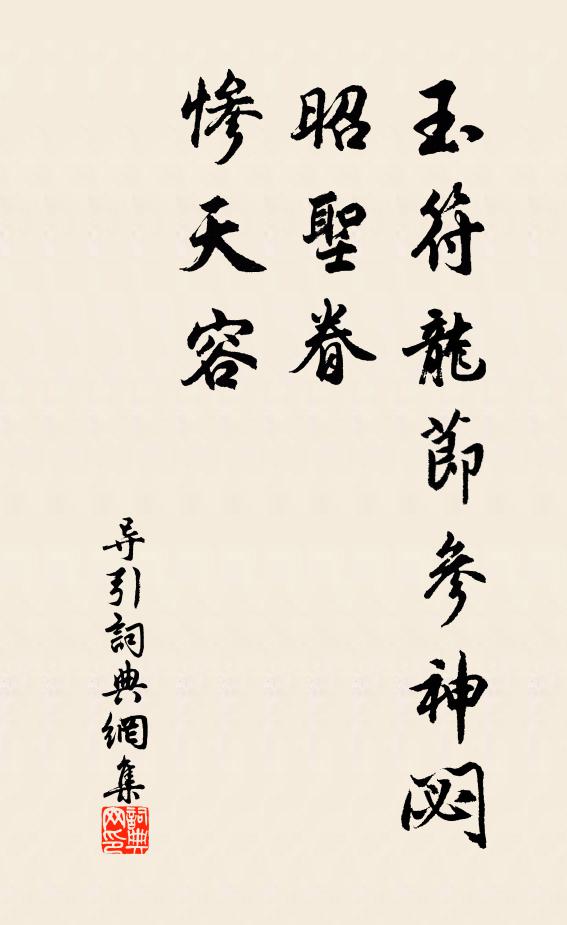 玉符龍節參神閟
昭聖眷
慘天容
导引詞典網集
詞典
网印